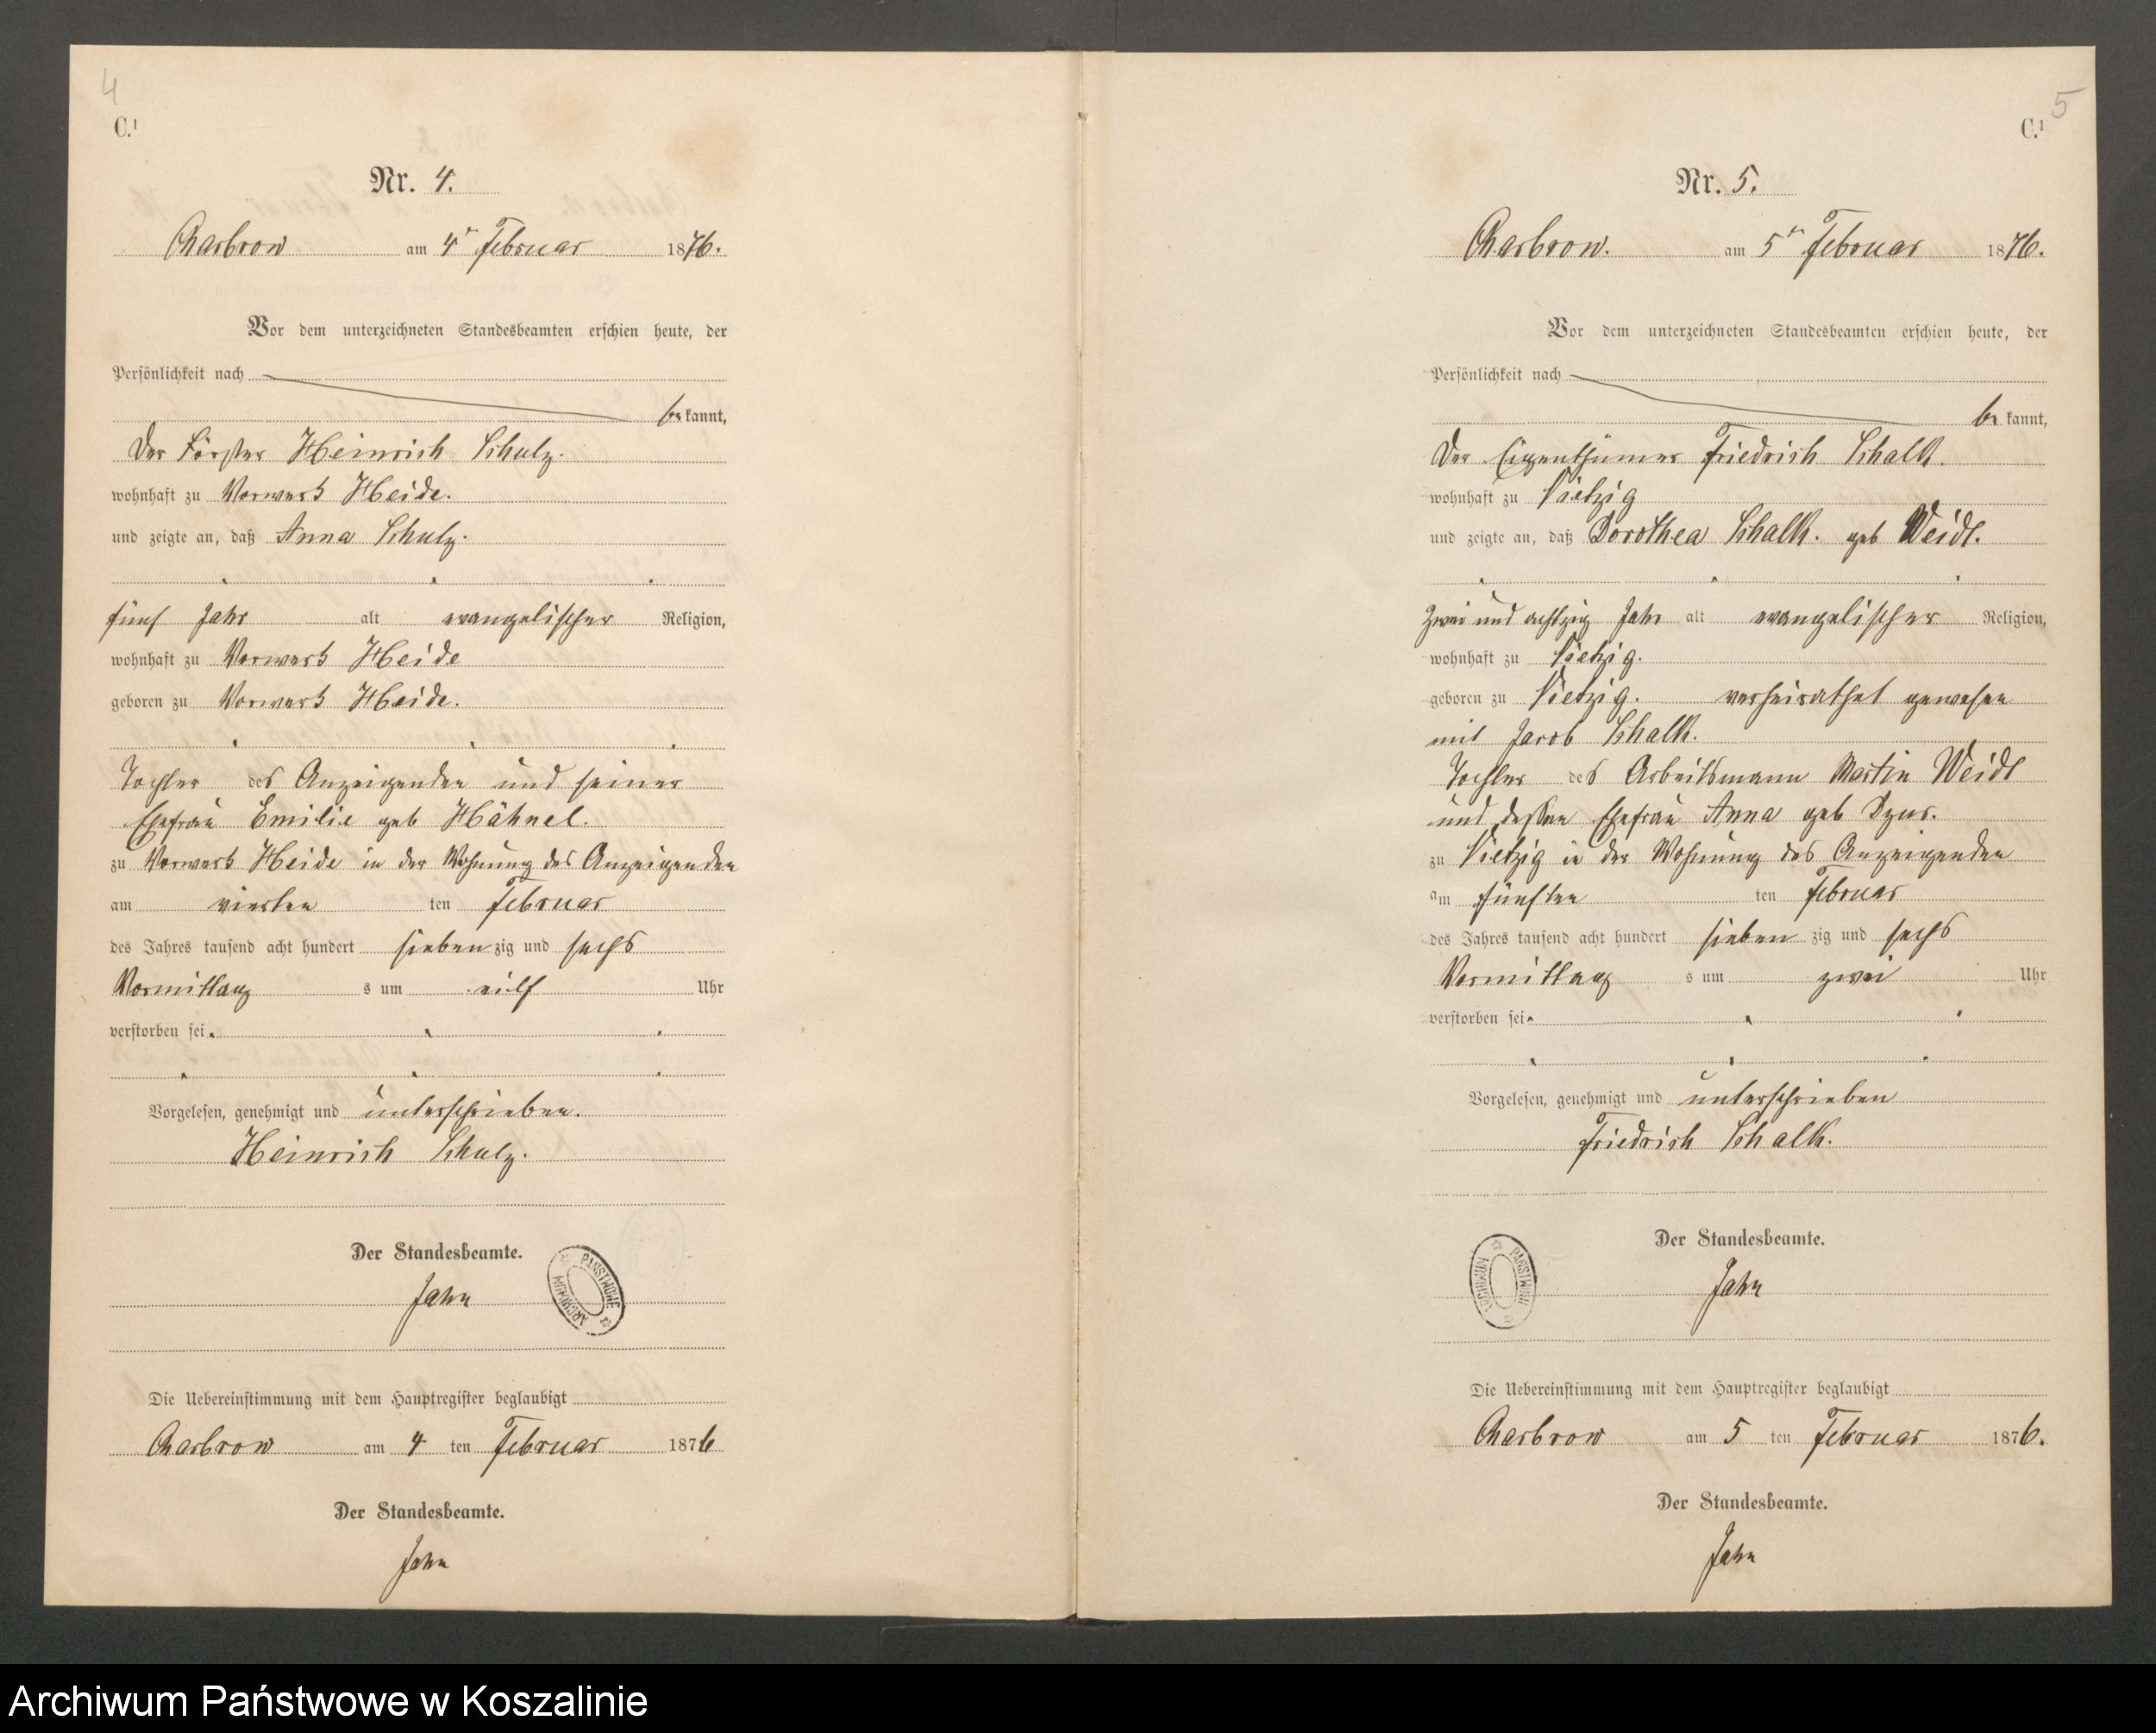 4
C.¹
Nr. 4.
Charbrow am 4ᵗ Februar 1876.
Vor dem unterzeichneten Standesbeamten erschien heute, der
Persönlichkeit nach
bekannt,
der Förster Heinrich Schulz.
wohnhaft zu Vorwerk Heide.
und zeigte an, daß Anna Schulz.
fünf Jahr alt evangelischer Religion,
wohnhaft zu Vorwerk Heide
geboren zu Vorwerk Heide.
Tochter des Anzeigenden und seiner
Ehefrau Emilie geb Hähnel.
zu Vorwerk Heide in der Wohnung des Anzeigenden
am vierten ten Februar
des Jahres tausend acht hundert sieben zig und sechs
Vormittag s um eilf Uhr
verstorben sei.
Vorgelesen, genehmigt und unterschrieben.
Heinrich Schulz.
Der Standesbeamte.
Jahn
ARCHIWUM PAŃSTWOWE
Die Uebereinstimmung mit dem Hauptregister beglaubigt
Charbrow am 4 ten Februar 1876
Der Standesbeamte.
Jahn
5
C.¹
Nr. 5.
Charbrow. am 5ᵗ Februar 1876.
Vor dem unterzeichneten Standesbeamten erschien heute, der
Persönlichkeit nach
be kannt,
der Eigenthümer Friedrich Schalk.
wohnhaft zu Vietzig
und zeigte an, daß Dorothea Schalk. geb Weidt.
zwei und achtzig Jahr alt evangelischer Religion,
wohnhaft zu Vietzig.
geboren zu Vietzig. verheirathet gewesen
mit Jacob Schalk.
Tochter des Arbeitsmann Martin Weidt
und dessen Ehefrau Anna geb
zu Vietzig in der Wohnung des Anzeigenden
am fünften ten Februar
des Jahres tausend acht hundert sieben zig und sechs
Vormittag s um zwei Uhr
verstorben sei
Vorgelesen, genehmigt und unterschrieben
Friedrich Schalk.
Der Standesbeamte.
Jahn
ARCHIWUM PAŃSTWOWE
Die Uebereinstimmung mit dem Hauptregister beglaubigt
Charbrow am 5 ten Februar 1876.
Der Standesbeamte.
Jahn
Archiwum Państwowe w Koszalinie